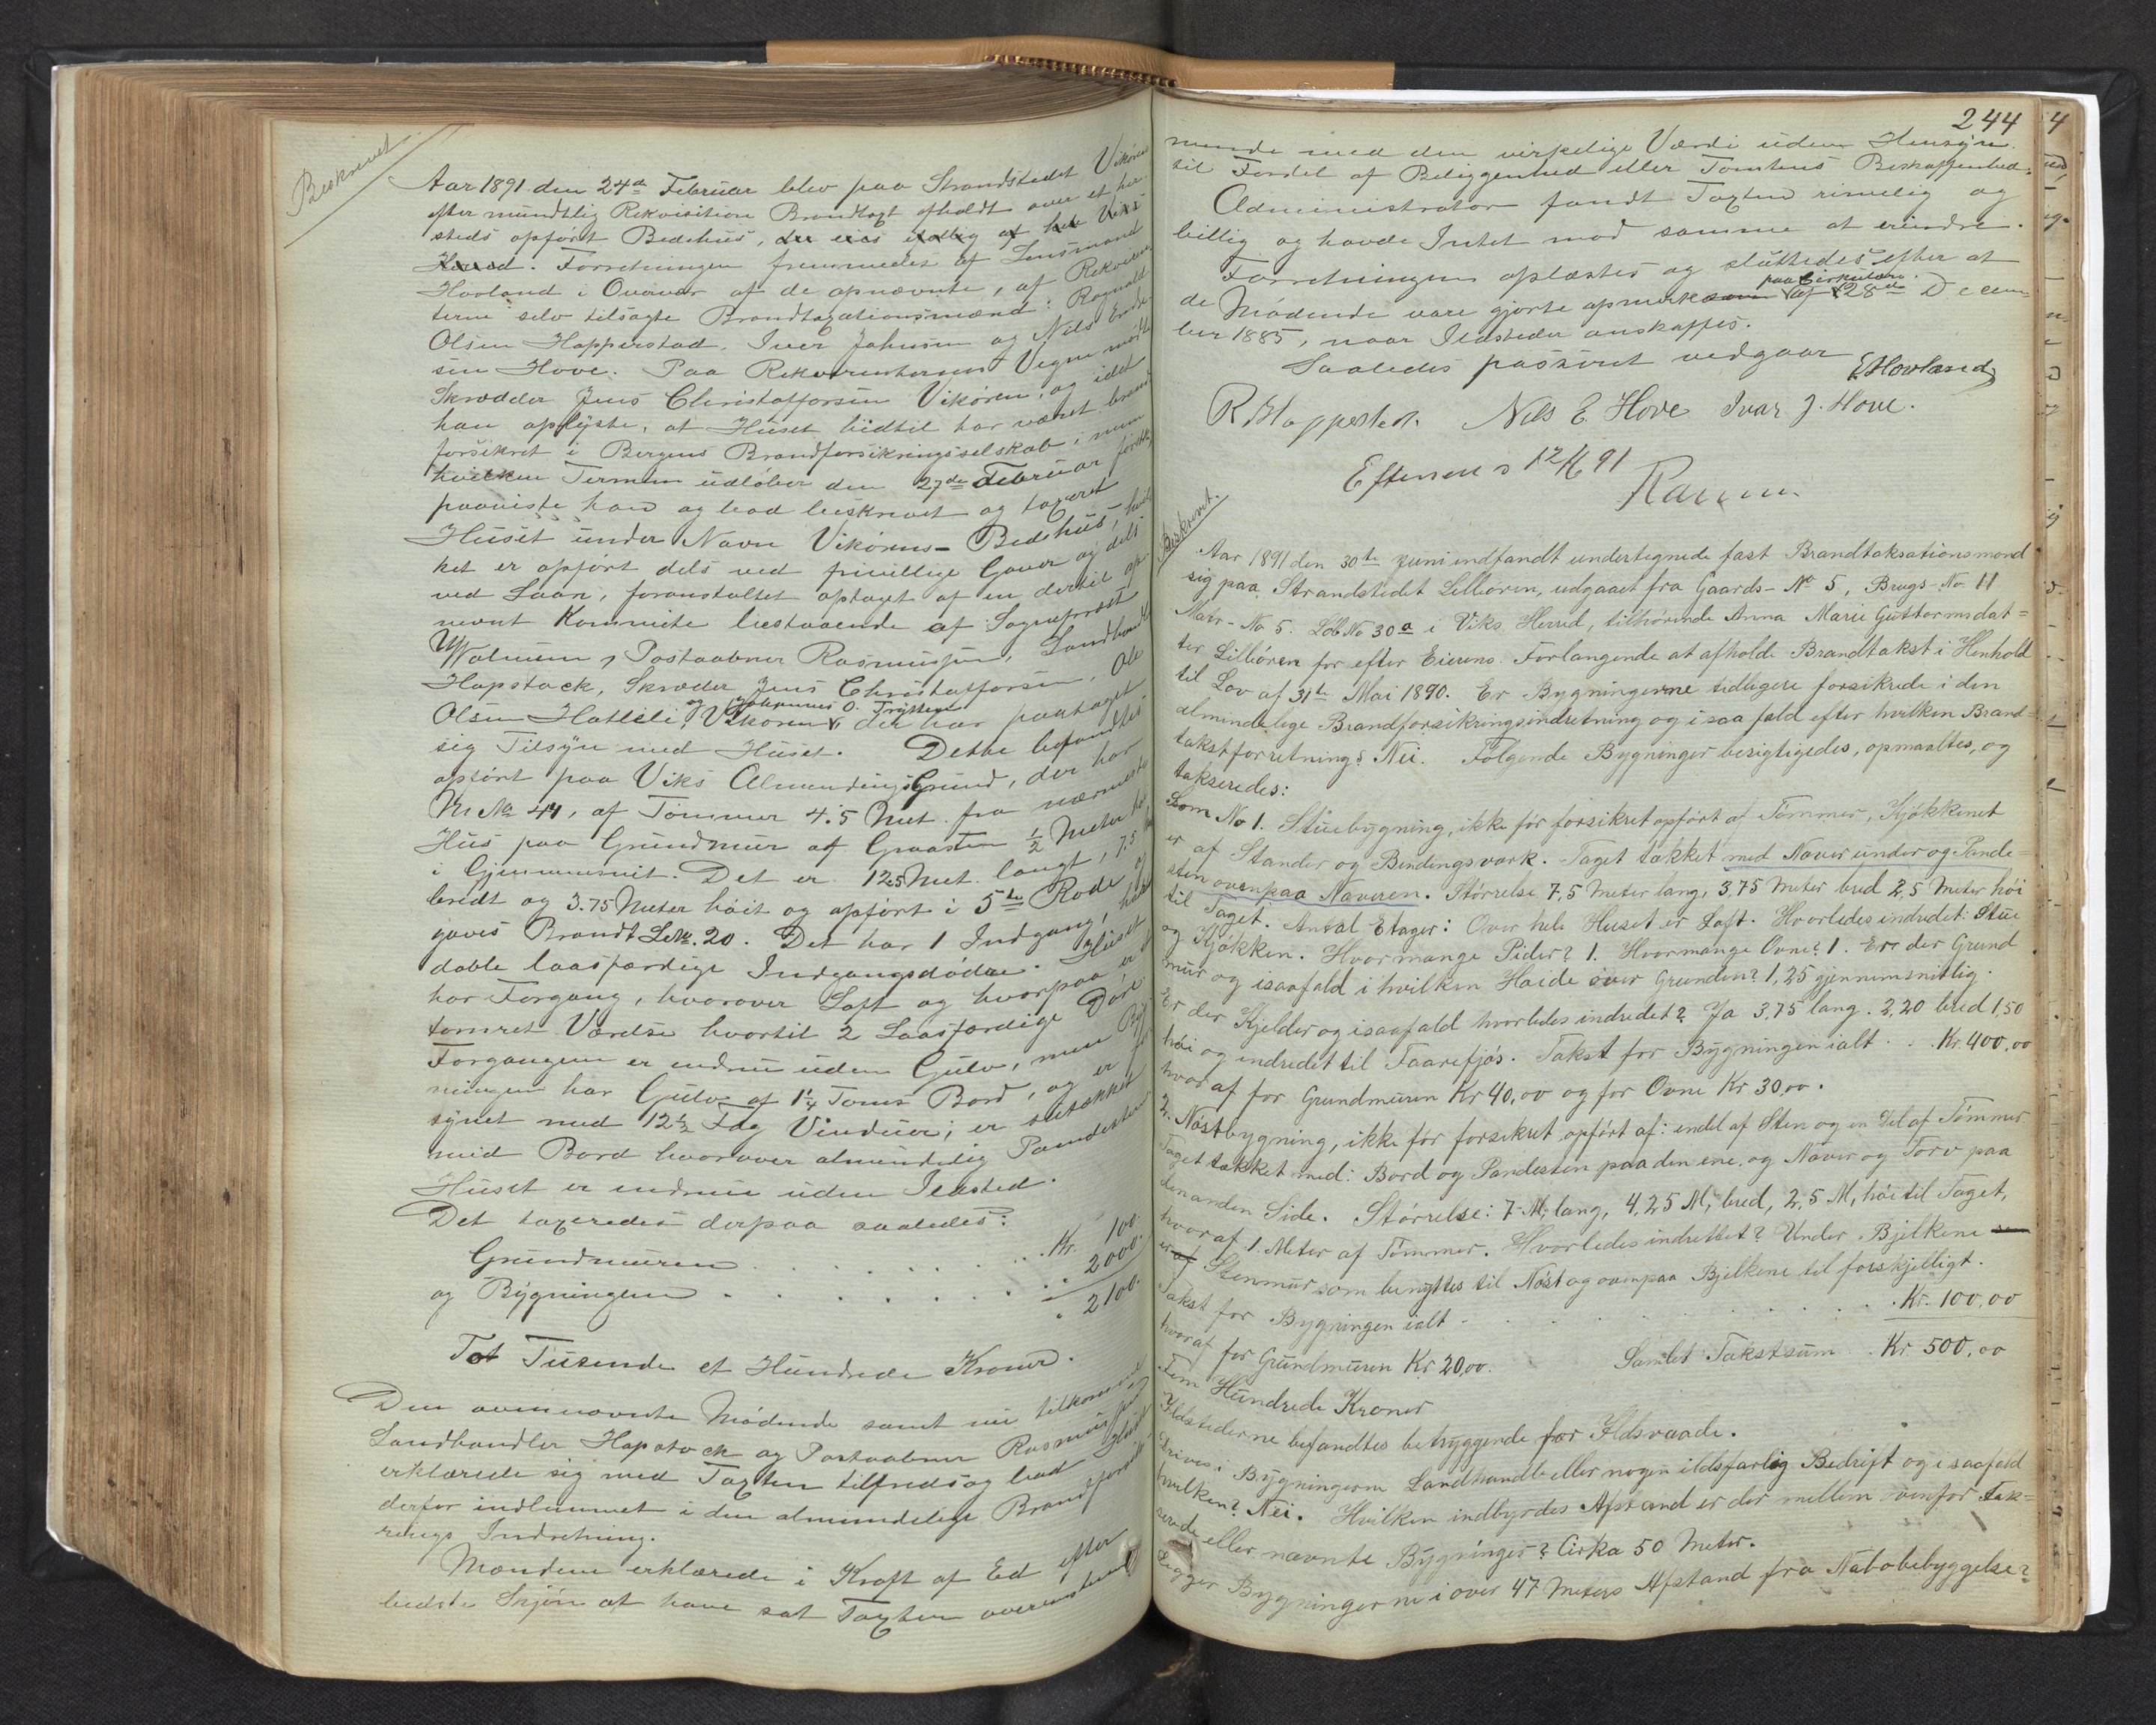 Beskrevet
Aar 1891 den 24de Februar blev paa Strandstedet Vikøren
efter mundtlig Rekvisition Brandtaxt afholdt over et her-
steds opført Bedehus, der eies af hele Viks
Herred. Forretningen fremmedes af Lensmand
Hovland i Overvær af de opnævnte, af Rekviren
terne selv tilsagte Brandtaxationsmænd: Ragnald
Olsen Hopperstad, Iver Johnsen og Nils Endre
sen Hove. Paa Rekvirenternes Vegne mødte
Skrædder Jens Christofforsen Vikøren, og idet
han oplyste, at Huset hidtil har været brand
forsikret i Bergens Brandforsikringsselskab i men
hvilken Termin udløber den 27de Februar førstk.
paaviste han og bad beskrevet og taxeret
Huset under Navn Vikørens-Bedehus, hvil
ket er opført dels ved frivillige Gaver og dels
ved Laan, foranstaltet optaget af en dertil op-
nevnt Kommite bestaaende af Sogneprest
Walnum, Postaabner Rasmussen, Landhandler
Hopstock, Skræder Jens Christofforsen, Ole
og Johannes O. Tryttene
Olsen Hatleli, Vikøren, der har paataget
sig Tilsyn med Huset. Dette befandtes
opført paa Viks Almendingsgrund, der har
M No 44, af Tømmer 4.5 Met. fra nærmeste
Hus paa Grundmur af Graasten ½ Meter høi
i Gjennemsnit. Det er 12.5 Met. langt, 7.5
bredt og 3.75 Meter høit og opført i 5te Rode og
gaves Brandt LNo. 20. Det har 1 Indgang, har
doble laasfærdige Indgangsdødre. Huset
har Forgang, hvorover Loft og hvorpaa er et
tømret Værelse hvortil 2 Laasfærdige Døre
Forgangen er endnu uden Gulv, men Byg
ningen har Gulv af 1¼ Toms Bord, og er for
synet med 12½ Fag Vinduer; er betækket
med Bord hvorover almindelig Pandesten
Huset er endnu uden Ildsted.
Det taxeredes derpaa saaledes:
Grundmuren . . . . . . . . Kr. 100.
og Bygningen . . . . . . . " 2000.
" 2100.
To Tusende et Hundrede Kroner.
Den ovennævnte Mødende samt nu tilkomne
Landhandler Hopstock og Postaabner Rasmussen
erklærede sig med Taxten tilfreds og bad Huset
derfor indlemmet i den almindelige Brandforsik
rings Indretning.
Mændene erklærede i Kraft af Ed efter
bedste Skjøn at have sat Taxten overensstem
244
mende med den virkelige Værdi uden Hensyn
til Fordel af Beliggenhed eller Tomtens Beskaffenhed.
Administrator fandt Taxten rimelig og
billig og havde Intet mod samme at erindre.
Forretningen oplæstes og sluttedes efter at
paa Cirkulære
de Mødende vare gjorte opmærksom af 28de Decem
ber 1885, naar Ildsteder anskaffes.
Saaledes passeret vedgaar
E Hovland
R. Hopperstad. Nils E. Hove Ivar J. Hove.
Efterseet 12/6 91
Beskrevet.
Aar 1891 den 30te Juni indfandt undertegnede fast Brandtaksationsmænd
sig paa Strandstedet Lilleøren, udgaaet fra Gaards-No 5, Brugs-No 11
Matr-No 5. Løb No 30a i Viks Herred, tilhørende Anna Marie Guttormsdat=
ter Lilleøren for efter Eierens Forlangende at afholde Brandtakst i Henhold
til Lov af 31te Mai 1890. Er Bygningerne tidligere forsikrede i den
almindelige Brandforsikringsindretning og i saa fald efter hvilken Brand=
takstforretning? Nei. Følgende Bygninger besigtigedes, opmaaltes, og
takseredes:
Som No 1. Stuebygning, ikke før forsikret opført af Tømmer, Kjøkkenet
er af Stander og Bindingsværk. Taget tækket med Næver under og Pande=
sten ovenpaa Næveren. Størrelse 7,5 Meter lang, 3,75 Meter bred 2,5 Meter høi
til Taget. Antal Etager: Over hele Huset er Loft. Hvorledes indredet: Stue
og Kjøkken. Hvor mange Piber? 1. Hvormange Ovne? 1. Er der Grund
mur og isaafald i hvilken Høide over Grunden? 1,25 gjennemsnitlig.
Er der Kjelder og isaafald hvorledes indredet? Ja 3,75 lang. 2,20 bred 1,50
høi og indredet til Faarefjøs. Takst for Bygningen ialt . . . Kr. 400,00
hvoraf for Grundmuren Kr 40,00 og for Ovne Kr 30,00.
2. Nøstbygning, ikke før forsikret, opført af: endel af Sten og en Del af Tømmer
Taget tækket med: Bord og Pandesten paa den ene, og Næver og Torv paa
den anden Side. Størrelse: 7 M, lang, 4,25 M, bred, 2,5 M, høi til Taget,
hvoraf 1. Meter af Tømmer. Hvorledes indrettet? Under Bjelkene
er af Stenmur som benyttes til Nøst og ovenpaa Bjelkene til forskjelligt.
Takst for Bygningen ialt . . . . . . . . . . . Kr. 100,00
hvoraf for Grundmuren Kr 20,00. Samlet Takstsum . Kr 500,00
Fem Hundrede Kroner
Ildstederne befandtes betryggende for Ildsvaade.
Drives i Bygningerne Landhandel eller nogen ildsfarlig Bedrift og i saafald
hvilken? Nei. Hvilken indbyrdes Afstand er der mellem ovenfor tak=
serede eller nævnte Bygninger? Cirka 50 Meter.
Ligger Bygningerne i over 47 Meters Afstand fra Nabobebyggelse?